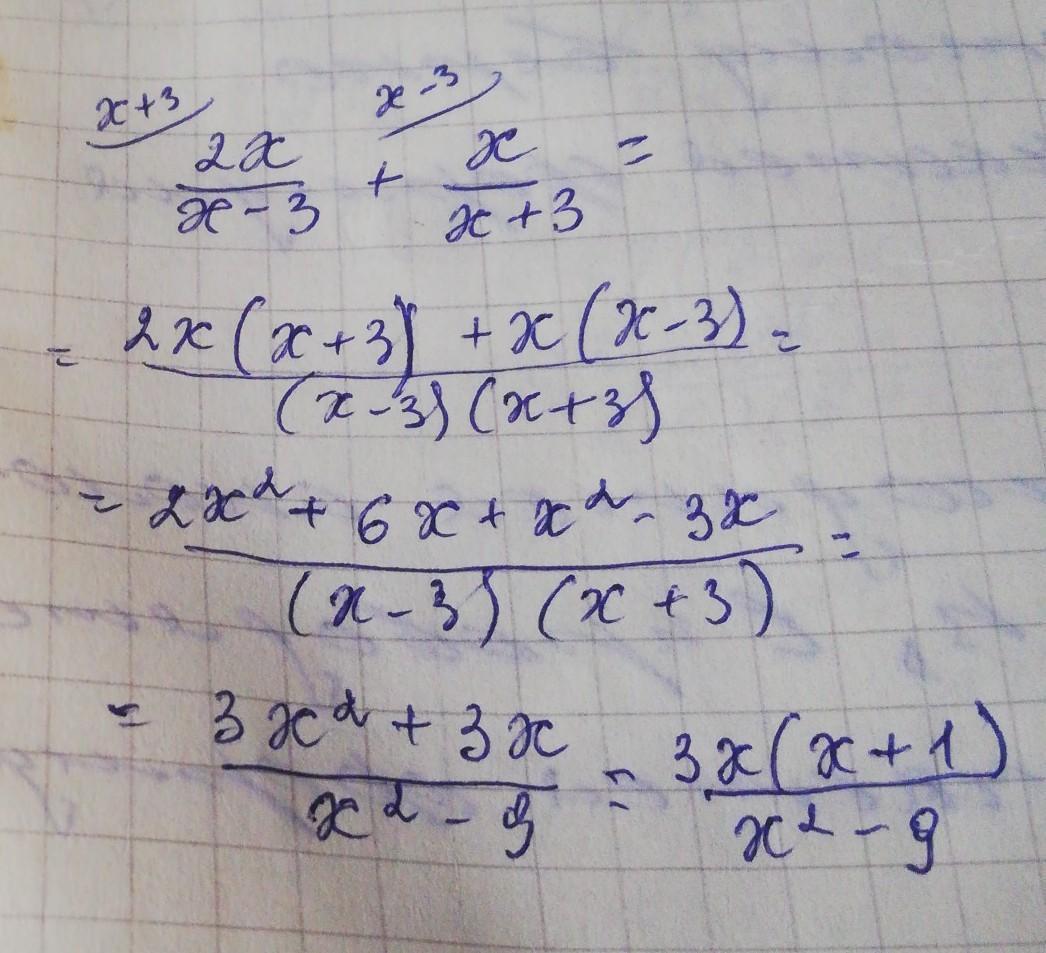 x+3 x-3
2x/(x-3) + x/(x+3) =
= (2x(x+3) + x(x-3))/((x-3)(x+3)) =
= (2x² + 6x + x² - 3x)/((x-3)(x+3)) =
= (3x² + 3x)/(x² - 9) = 3x(x+1)/(x² - 9)